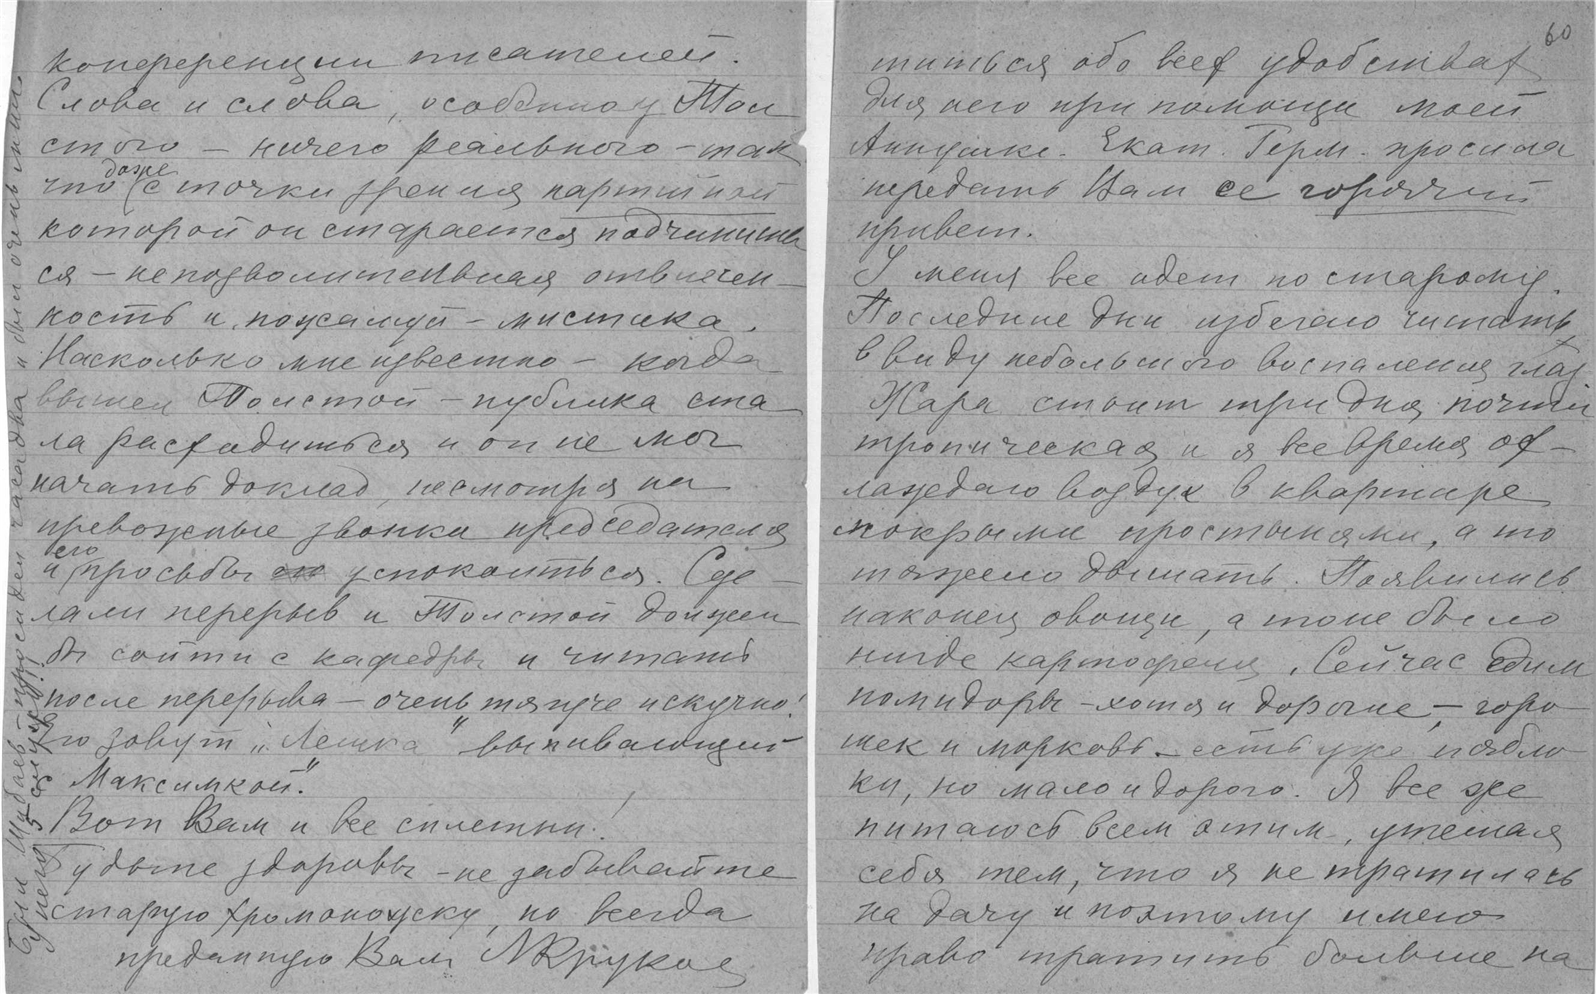 конференции писателей.
Слова и слова, особенно у Тол
стого – ничего реального – так
что даже с точки зрения партийной
которой он старается подчинить
ся – непозволительная отвлечен–
ность и, пожалуй – мистика.
Насколько мне известно – когда
вышел Толстой – публика ста
ла расходиться и он не мог
начать доклад, несмотря на
тревожные звонки председателя
и его просьбы успокоиться. Сде–
лали перерыв и Толстой должен
б. сойти с кафедры и читать
после перерыва – очень тягуче и скучно!
Его зовут „Лешка" выпивающий
Максимкой."
Вот Вам и все сплетни!
Будьте здоровы – не забывайте
старую хромоножку, но всегда
преданную Вам
были очень милы
60
титься обо всех удобствах
для него при помощи моей
Аннушки. Екат. Герм. просила
передать Вам ее горячий
привет.
У меня все идет по старому.
Последние дни избегаю читать
в виду небольшого воспаления глаз.
Жара стоит три дня, почти
тропическая и я все время ох–
лаждаю воздух в квартире
мокрыми простынями, а то
тяжело дышать. Появились
наконец овощи, а то не было
нигде картофеля. Сейчас едим
помидоры – хотя и дорогие, – горо–
шек и морковь – есть уже и ябло–
ки, но мало и дорого. Я все же
питаюсь всем этим, утешая
себя тем, что я не тратилась
на дачу и поэтому имею
право тратить больше на